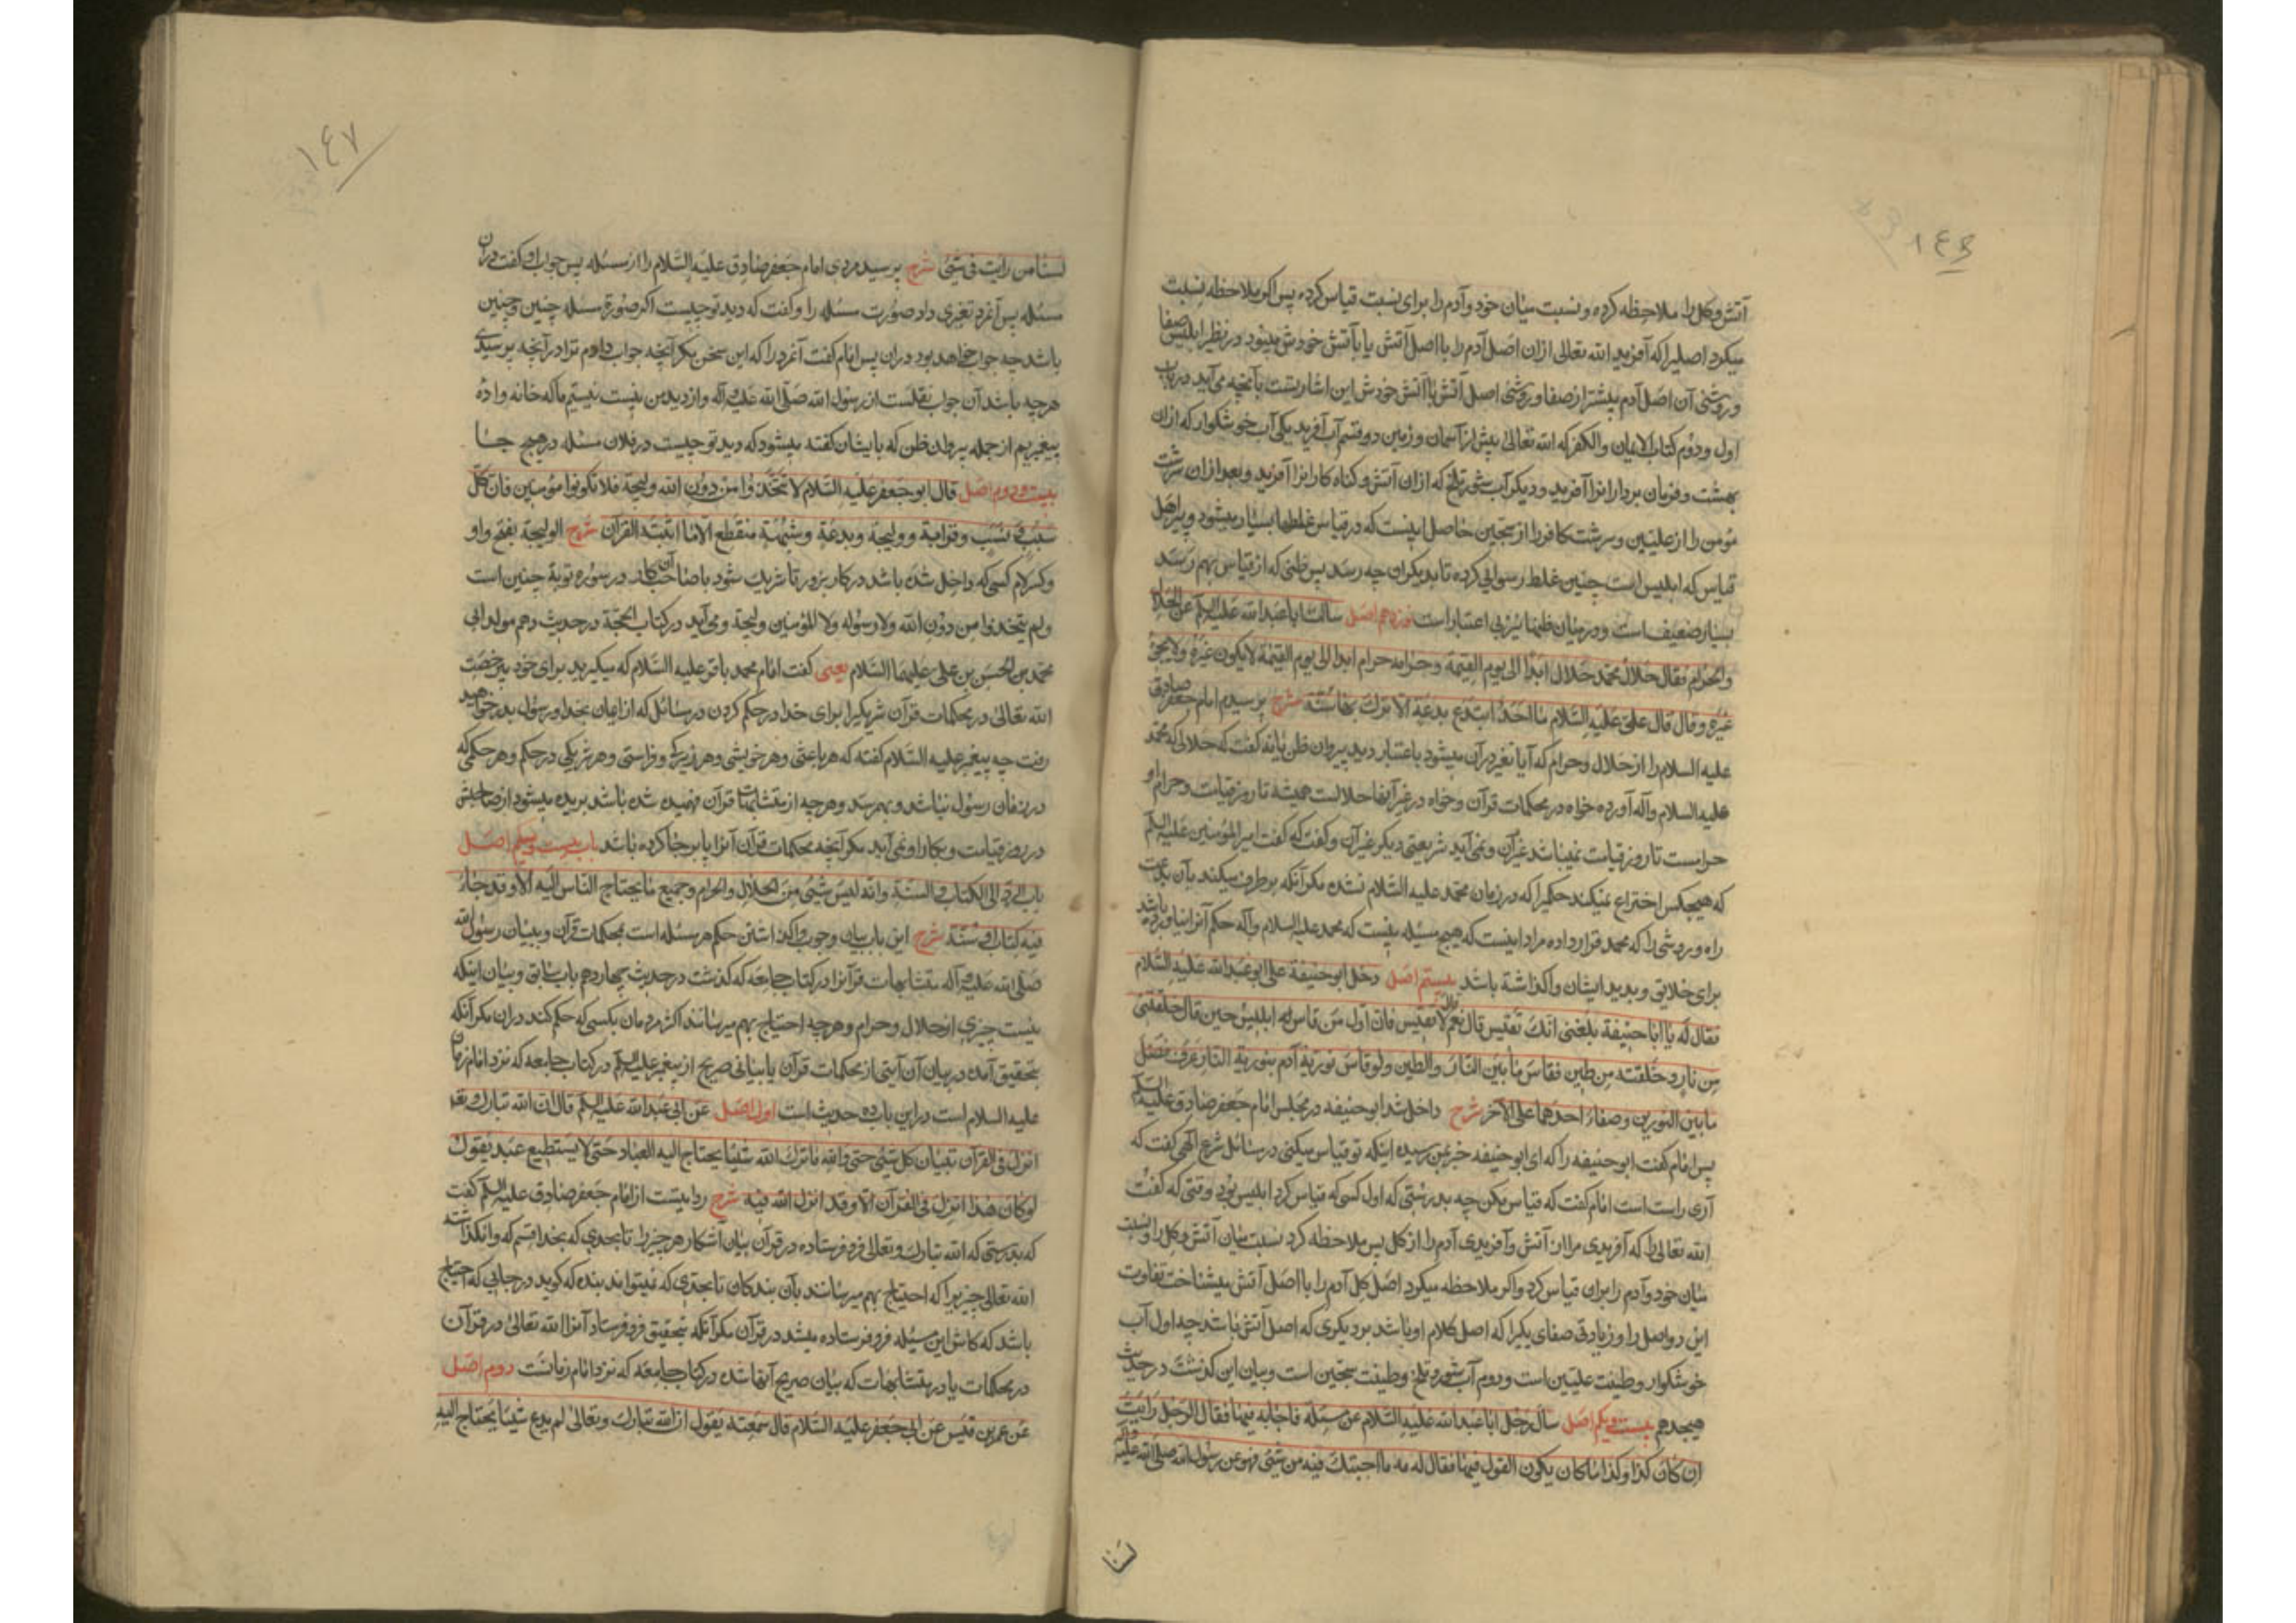 ١٤٦
آتش و کل را ملاحظه کرده و نسبت میان خود و آدم را برای نسبت قیاس کرده پس اکر ملاحظه نسبت
میکرد اصلیرا که آفرید الله تعالی ازان اصل آدم را با اصل آتش یا با آتش خودش میبود در نظر ابلیس صفا
و روشنی آن اصل آدم بیشتر از صفا و روشنی اصل آتش با آتش خودش این اشارتست بآنچه می آید در باب
اول و دوم کتاب الایمان و الکفر که الله تعالی پیش از آسمان و زمین دو قسم آب آفرید یکی آب خوشکوار که ازان
بهشت و فرمان بردارانرا آفرید و دیکر آب شور تلخ که ازان آتش و کناه کارانرا آفرید و بعد ازان سرشت
مؤمن را از علیین و سرشت کافر را از سجین حاصل اینست که در قیاس غلطها بسیار میشود و پیر اهل
قیاس که ابلیس است چنین غلط رسوایی کرده تا بدیکران چه رسد پس ظنی که از قیاس بهم رسد
بسیار ضعیف است و در میان ظنها نیز بی اعتبار است نوزدهم اصل سالت ابا عبد الله علیه السلم عن الحلال
والحرام فقال حلال محمد حلال ابدا الی یوم القیمة وحرامه حرام ابدا الی یوم القیمة لا یکون غیره ولا یجئ
غیره وقال قال علی علیه السلام ما احد ابتدع بدعة الا ترک بها سنة شرح پرسیدم امام جعفر صادق
علیه السلام را از حلال و حرام که آیا تغیر در آن میشود باعتبار دید پیروان ظن یا نه کفت که حلالی که محمد
علیه السلام وآله آورده خواه در محکمات قرآن و خواه در غیر آنها حلالست همیشه تا روز قیامت و حرام او
حرامست تا روز قیامت نمیباشد غیر آن و نمی آید شریعتی دیکر غیر آن و کفت که کفت امیر المؤمنین علیه السلم
که هیچکس اختراع نمیکند حکمیرا که در زمان محمد علیه السلام نشده مکر آنکه برطرف میکند بآن بدعت
راه و روشی را که محمد قرار داده مراد اینست که هیچ مسئله نیست که محمد علیه السلام وآله حکم آنرا نیاورده باشد
برای خلایق و بدید ایشان واکذاشته باشد بیستم اصل دخل ابو حنیفة علی ابو عبد الله علیه السلام
فقال له یا ابا حنیفة بلغنی انک تقیس قال نعم قال لا تقیس فان اول من قاس له ابلیس حین قال خلقتنی
من نار وخلقته من طین فقاس ما بین النار والطین ولو قاس نوریة آدم بنوریة النار عرف فضل
ما بین النورین وصفاء احدهما علی الآخر شرح داخل شد ابو حنیفه در مجلس امام جعفر صادق علیه السلم
پس امام کفت ابو حنیفه را که ای ابو حنیفه خبر بمن رسیده اینکه تو قیاس میکنی در مسائل شرع الهی کفت که
آری راست است امام کفت که قیاس مکن چه بدرستی که اول کسی که قیاس کرد ابلیس بود وقتی که کفت
الله تعالی را که آفریدی مرا از آتش و آفریدی آدم را از کل پس ملاحظه کرد نسبت میان آتش و کل را و نسبت
میان خود و آدم را بران قیاس کرد و اکر ملاحظه میکرد اصل کل آدم را با اصل آتش میشناخت تفاوت
این دو اصل را و زیادتی صفای یکیرا که اصل کلام او باشد بر دیکری که اصل آتش باشد چه اول آب
خوشکوار و طینت علیین است و دوم آب شور و تلخ و طینت سجین است و بیان این کذشت در حدیث
هیجدهم بیست و یکم اصل سال رجل ابا عبد الله علیه السلام عن مسئله فاجابه فیها فقال الرجل رایت
ان کان کذا وکذا ما کان یکون القول فیها فقال له مه ما اجبتک فیه من شئ فهو عن رسول الله صلی الله علیه وآله
لسنا
١٤٧
لسنا من رایت فی شئ شرح پرسید مردی امام جعفر صادق علیه السلام را از مسئله پس جواب او کفت دران
مسئله پس آنمرد تغیری داد صورت مسئله را و کفت که دید تو چیست اکر صورة مسئله چنین و چنین
باشد چه جواب خواهد بود دران پس امام کفت آنمرد را که این سخن مکو آنچه جواب دادم ترا در آنچه پرسیدی
هرچه باشد آن جواب نقلست از رسول الله صلی الله علیه وآله و از دید من نیست نیستیم ما که خانه واده
پیغمبریم از جمله پیروان ظن که بایشان کفته میشود که دید تو چیست در فلان مسئله در هیچ جا
بیست و دوم اصل قال ابو جعفر علیه السلام لا تتخذوا من دون الله ولیجة فلا تکونوا مؤمنین فان کل
سبب ونسب وقرابة وولیجة وبدعة وشبهة منقطع الا ما اثبته القرآن شرح الولیجة بفتح واو
و کسر لام کسی که داخل شده باشد در کار بزور تا شریک شود با صاحب آن کار در سوره توبة چنین است
ولم یتخذوا من دون الله ولا رسوله ولا المؤمنین ولیجة و می آید در کتاب الحجة در حدیث دهم مولد ابی
محمد بن الحسن بن علی علیهما السلام یعنی کفت امام محمد باقر علیه السلام که میکیرید برای خود بی رخصت
الله تعالی در محکمات قرآن شریکیرا برای خدا در حکم کردن در مسائل که از ایمان بخدا و رسول بدر خواهید
رفت چه پیغمبر علیه السلام کفته که هر باعثی و هر خویشی و هر نزدیکی و قراستی و هر شریکی در حکم و هر حکمی که
در زمان رسول نباشد و بهمرسد و هرچه از متشابهات قرآن فهمیده شده باشد بریده میشود از صاحبش
در روز قیامت و بکار او نمی آید مکر آنچه محکمات قرآن آنرا پا برجا کرده باشد باب بیست و یکم اصل
باب الرد الی الکتاب والسنة وانه لیس شئ من الحلال والحرام وجمیع ما یحتاج الناس الیه الا وقد جاء
فیه کتاب و سنة شرح این باب بیان وجوب واکذاشتن حکم هر مسئله است بمحکمات قرآن و ببیان رسول الله
صلی الله علیه وآله متشابهات قرآنرا در کتاب جامعه که کذشت در حدیث چهاردهم باب سابق و بیان اینکه
نیست چیزی از حلال و حرام و هرچه احتیاج بهم میرسانند اکثر مردمان بکسی که حکم کند دران مکر آنکه
بتحقیق آمده در بیان آن آیتی از محکمات قرآن یا بیانی صریح از پیغمبر علیه السلم در کتاب جامعه که نزد امام زمان
علیه السلام است در این باب ده حدیث است اول اصل عن ابی عبد الله علیه السلم قال ان الله تبارک وتع
انزل فی القرآن تبیان کل شئ حتی والله ما ترک الله شیئا یحتاج الیه العباد حتی لا یستطیع عبد یقول
لو کان هذا انزل فی القرآن الا وقد انزل الله فیه شرح روایتست از امام جعفر صادق علیه السلم کفت
که بدرستی که الله تبارک وتعالی فرو فرستاده در قرآن بیان آشکار هر چیز را تا بحدی که بخدا قسم که وانکذاشته
الله تعالی چیزیرا که احتیاج بهم میرسانند بآن بندکان تا بحدی که نمیتواند بنده که کوید در جایی که احتیاج
باشد که کاش این مسئله فرو فرستاده میشد در قرآن مکر آنکه بتحقیق فرو فرستاد آنرا الله تعالی در قرآن
در محکمات یا در متشابهات که بیان صریح آنها شده در کتاب جامعه که نزد امام زمانست دوم اصل
عن عمر بن قیس عن ابی جعفر علیه السلام قال سمعته یقول ان الله تبارک وتعالی لم یدع شیئا یحتاج الیه